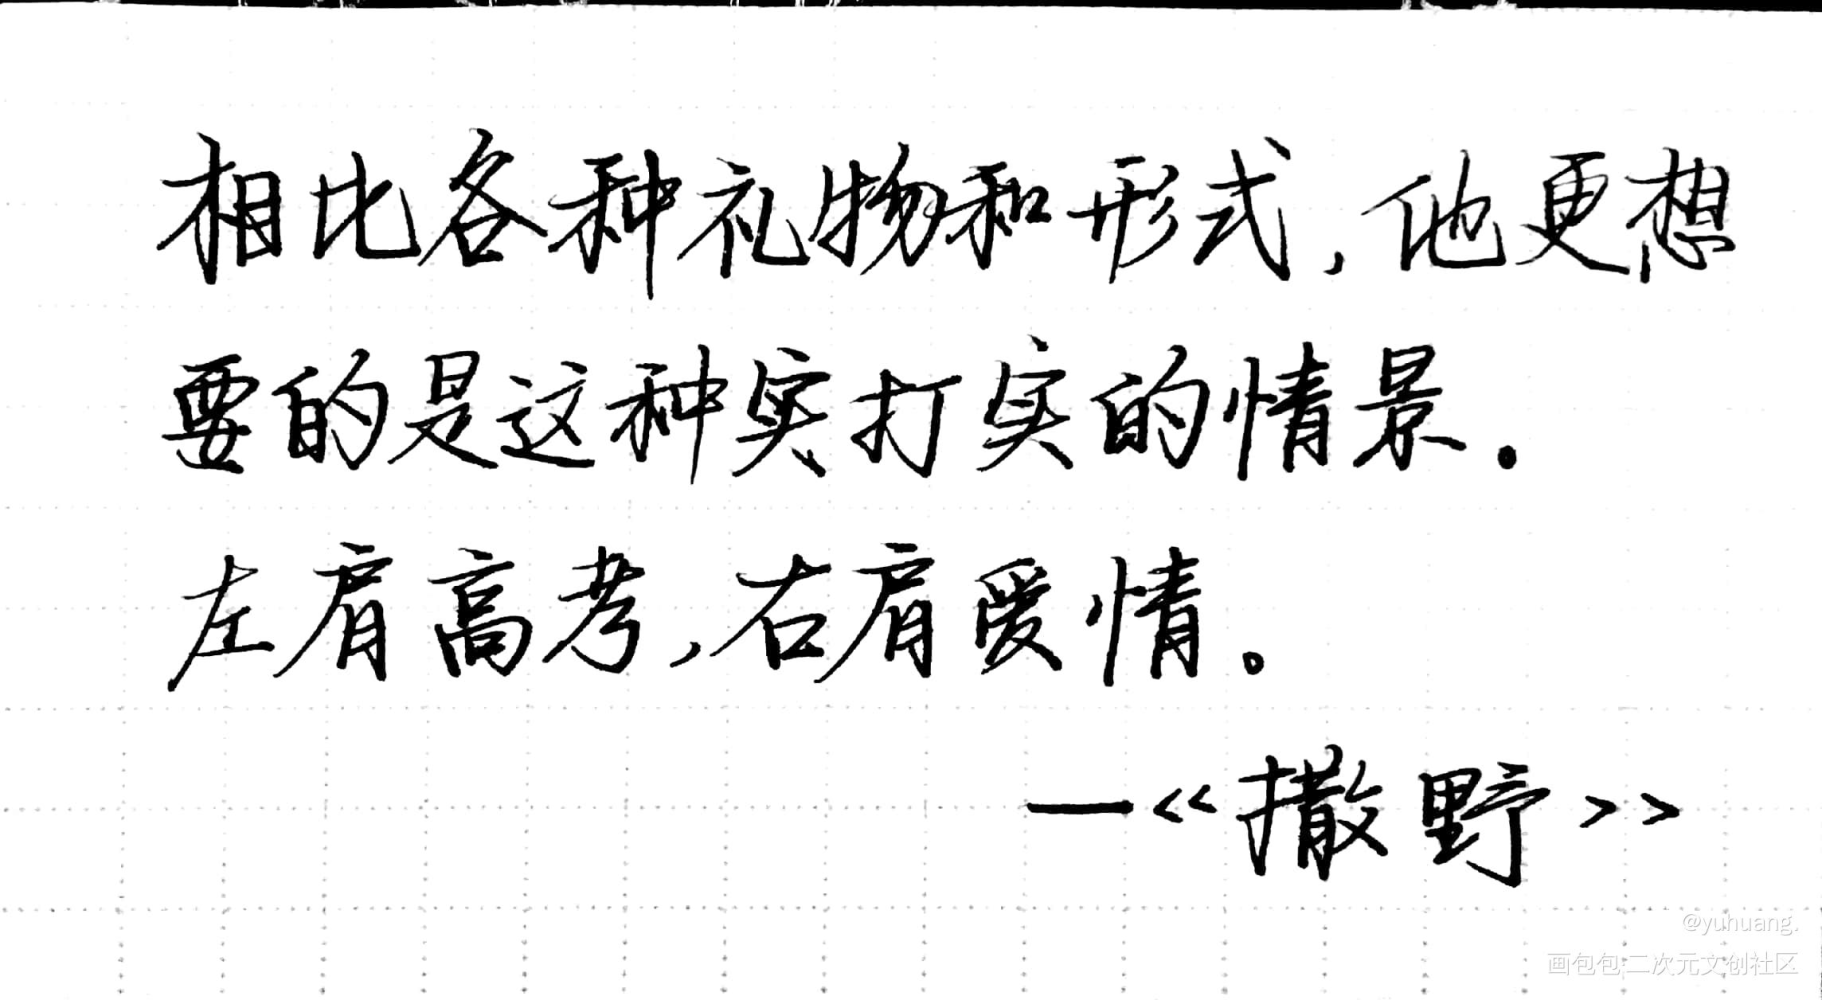 相比各种礼物和形式,他更想
要的是这种实打实的情景.
左肩高考,右肩爱情。
—<<撒野>>
@yuhuang.
画包包·二次元文创社区